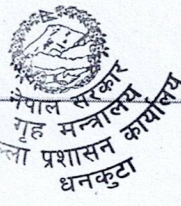 नेपाल सरकार
गृह मन्त्रालय
ला प्रशासन कार्यालय
धनकुटा